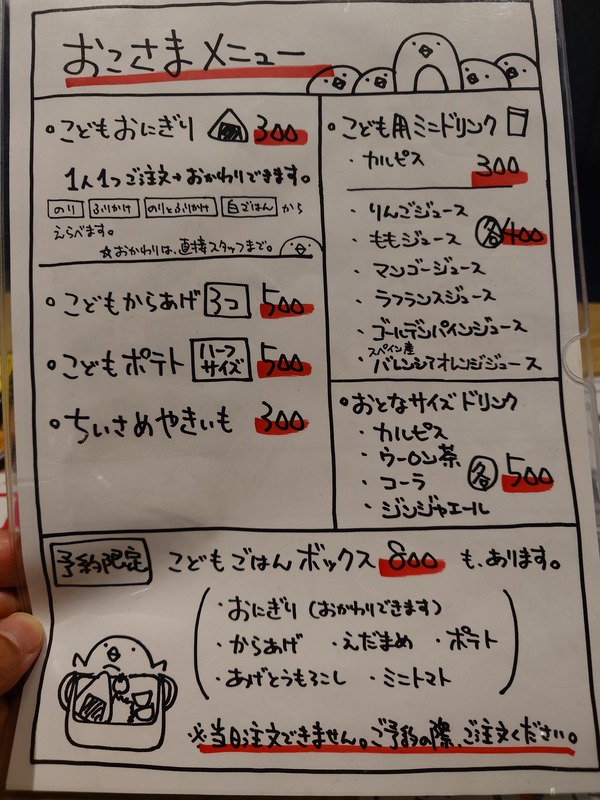 おこさまメニュー
・こどもおにぎり 300
1人1つご注文→おかわりできます。
のり ふりかけ のりとふりかけ 白ごはん から
えらべます。
☆おかわりは、直接スタッフまで。
・こどもからあげ 3つ 500
・こどもポテト ハーフサイズ 500
・ちいさめやきいも 300
・こども用ミニドリンク
・カルピス 300
・りんごジュース
・ももジュース 各400
・マンゴージュース
・ラフランスジュース
・ゴールデンパインジュース
スペイン産
・バレンシアオレンジジュース
・おとなサイズドリンク
・カルピス
・ウーロン茶
・コーラ 各500
・ジンジャエール
予約限定 こどもごはんボックス 800 も、あります。
・おにぎり(おかわりできます)
・からあげ ・えだまめ ・ポテト
・あげとうもろこし ・ミニトマト
※当日注文できません。ご予約の際、ご注文ください。